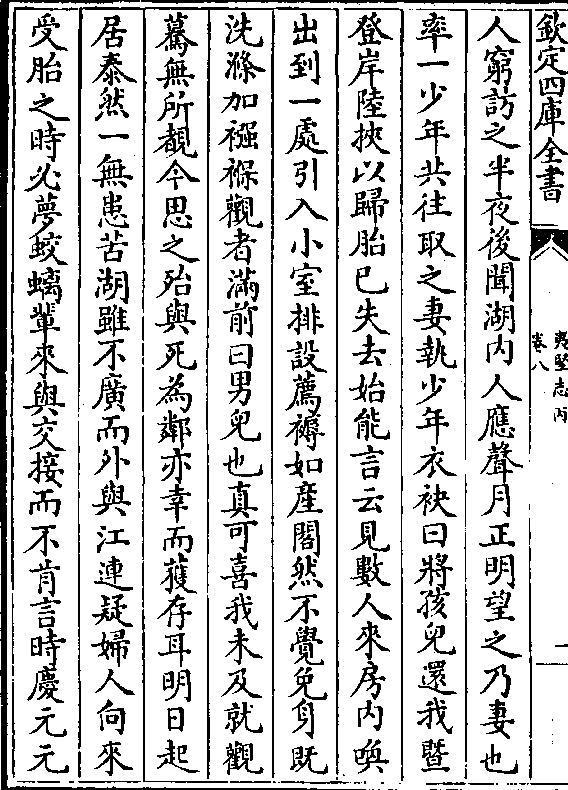 欽定四庫全書
夷堅志丙
卷八
一
人窮訪之半夜後聞湖内人應聲月正明望之乃妻也
率一少年共往取之妻執少年衣袂曰將孩兒還我暨
登岸陸挾以歸胎已失去始能言云見數人來房内喚
出到一處引入小室排設薦褥如産閣然不覺免身既
洗滌加襁褓觀者滿前曰男兒也真可喜我未及就觀
驀無所覩今思之殆與死為鄰亦幸而獲存耳明日起
居泰然一無患苦湖雖不廣而外與江連疑婦人向來
受胎之時必夢蛟螭輩來與交接而不肯言時慶元元